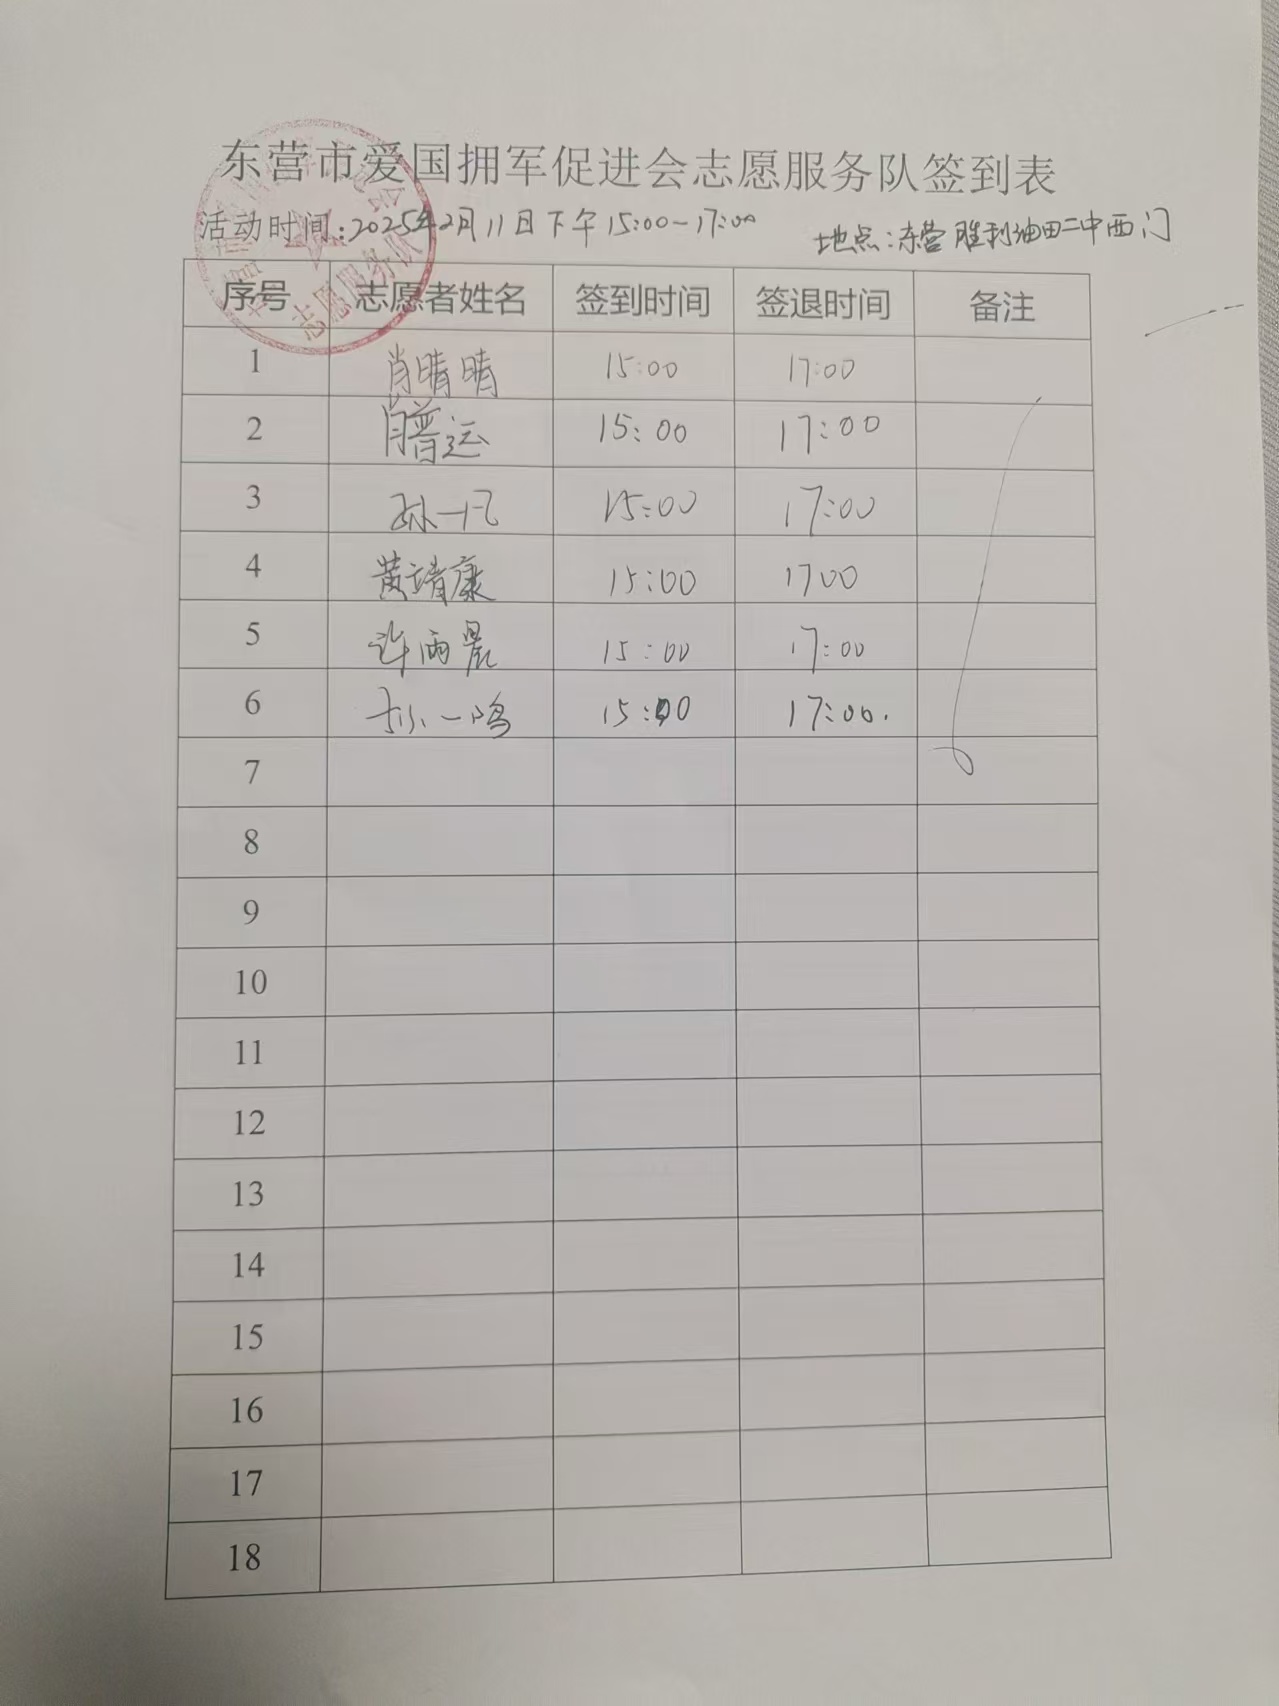 东营市爱国拥军促进会志愿服务队签到表
活动时间:2025年2月11日下午15:00-17:00 地点:东营胜利油田二中西门
志愿服务队
序号 志愿者姓名 签到时间 签退时间 备注
1 肖晴晴 15:00 17:00
2 肖普运 15:00 17:00
3 孙一凡 15:00 17:00
4 黄靖康 15:00 1700
5 许雨晨 15:00 17:00
6 孙一鸣 15:00 17:00.
7
8
9
10
11
12
13
14
15
16
17
18